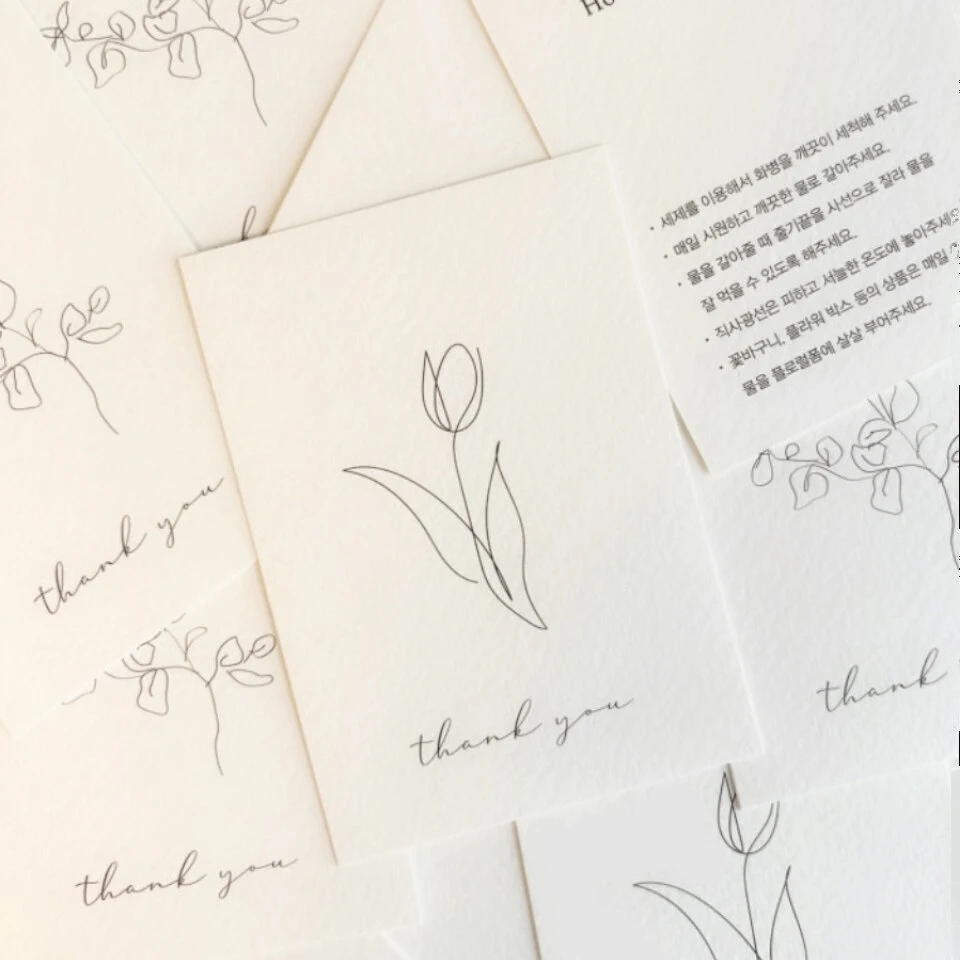 Ho
• 세제를 이용해서 화병을 깨끗이 세척해 주세요.
• 매일 시원하고 깨끗한 물로 갈아주세요.
• 물을 갈아줄 때 줄기끝을 사선으로 잘라 물을
잘 먹을 수 있도록 해주세요.
• 직사광선은 피하고 서늘한 온도에 놓아주세요
• 꽃바구니, 플라워 박스 등의 상품은 매일
물을 플로럴폼에 살살 부어주세요.
thank you
thank you
thank
thank you